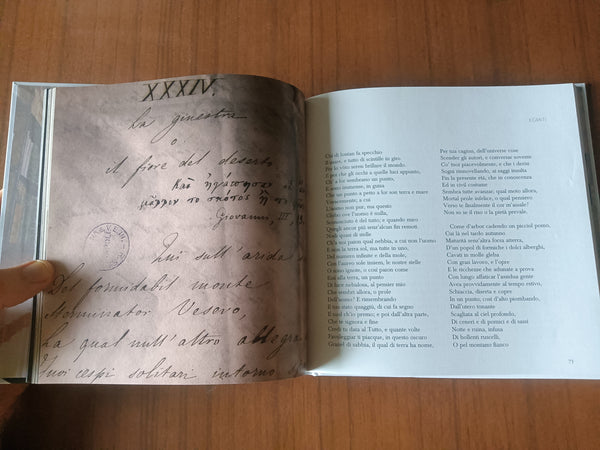 XXXIV.
La ginestra
o
il fiore del deserto
Καὶ ἠγάπησαν
μᾶλλον τὸ σκότος ἢ τὸ
Giovanni, III,
Qui sull'arida
Del formidabil monte
Sterminator Vesevo,
La qual null'altro allegra
Tuoi cespi solitari intorno
I CANTI
Cui di lontan fa specchio
Il mare, e tutto di scintille in giro
Per lo vòto seren brillare il mondo.
E poi che gli occhi a quelle luci appunto,
Ch'a lor sembrano un punto,
E sono immense, in guisa
Che un punto a petto a lor son terra e mare
Veracemente; a cui
L'uomo non pur, ma questo
Globo ove l'uomo è nulla,
Sconosciuto è del tutto; e quando miro
Quegli ancor più senz'alcun fin remoti
Nodi quasi di stelle
Ch'a noi paion qual nebbia, a cui non l'uomo
E non la terra sol, ma tutte in uno,
Del numero infinite e della mole,
Con l'aureo sole insiem, le nostre stelle
O sono ignote, o così paion come
Essi alla terra, un punto
Di luce nebulosa; al pensier mio
Che sembri allora, o prole
Dell'uomo? E rimembrando
Il tuo stato quaggiù, di cui fa segno
Il suol ch'io premo; e poi dall'altra parte,
Che te signora e fine
Credi tu data al Tutto, e quante volte
Favoleggiar ti piacque, in questo oscuro
Granel di sabbia, il qual di terra ha nome,
Per tua cagion, dell'universe cose
Scender gli autori, e conversar sovente
Co' tuoi piacevolmente, e che i derisi
Sogni rinnovellando, ai saggi insulta
Fin la presente età, che in conoscenza
Ed in civil costume
Sembra tutte avanzar; qual moto allora,
Mortal prole infelice, o qual pensiero
Verso te finalmente il cor m'assale?
Non so se il riso o la pietà prevale.
Come d'arbor cadendo un picciol pomo,
Cui là nel tardo autunno
Maturità senz'altra forza atterra,
D'un popol di formiche i dolci alberghi,
Cavati in molle gleba
Con gran lavoro, e l'opre
E le ricchezze che adunate a prova
Con lungo affaticar l'assidua gente
Avea provvidamente al tempo estivo,
Schiaccia, diserta e copre
In un punto; così d'alto piombando,
Dall'utero tonante
Scagliata al ciel profondo,
Di ceneri e di pomici e di sassi
Notte e ruina, infusa
Di bollenti ruscelli,
O pel montano fianco